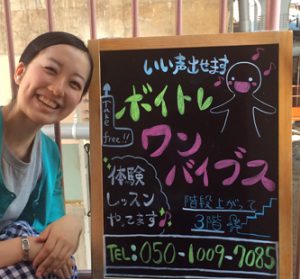 いい声出せます
Take
free!!
ボイトレ
ワン
バイブス
体験
レッスン
やってます
階段上がって
3階
TEL: 050-1009-7085